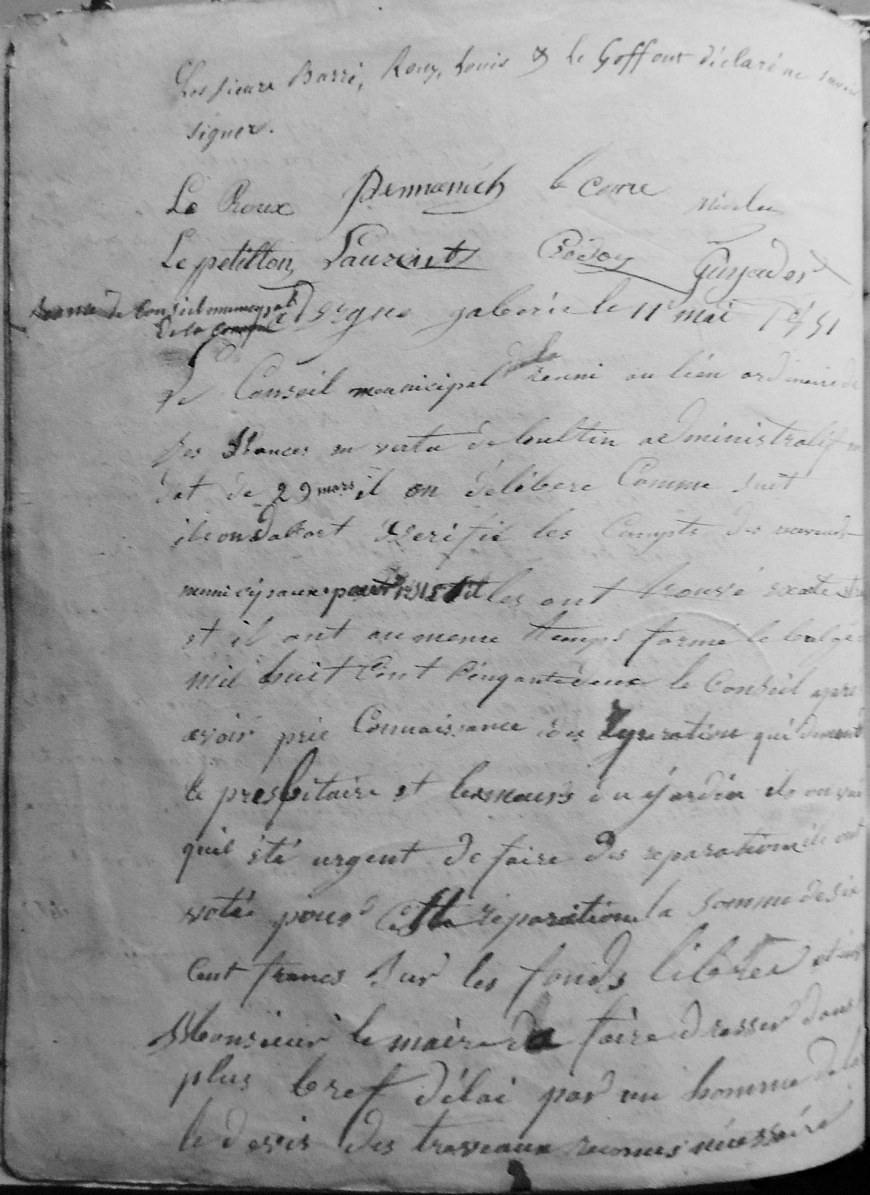 Les sieurs Barré, Rouz, Louis & Le Goff ont déclaré ne savoir
signer.
Le Roux Pennanéch le corre Nicolas
Le petillon, Laurent Credoy Guyader
de Conseil municipal
Et la Comm
Ergué gabéric le 11 mai 1851
Le Conseil municipal reuni au lieu ordinaire de
ses séances en vertu de bultin administratif en
dat de 29 mars il on délibéré Comme suit
ils ond abort verifié les Compts des revenus
municipaux pour 1851 les ont trouvé exacte
et il ont au meme temps formé le bulgé
mil huit Cent Cinquantedeux le Conseil apré
avoir prie Connaissance des réparation qui
le presbitaire et les murs du jardin ils on
quil été urgent de faire des reparation ils ont
votée pour cette réparation la somme de six
Cent francs sur les fonds libres et
Monsieur le maire de faire dresser dans
plus bref délai par un homme de la
le devis des traveaux reconus nécessaire